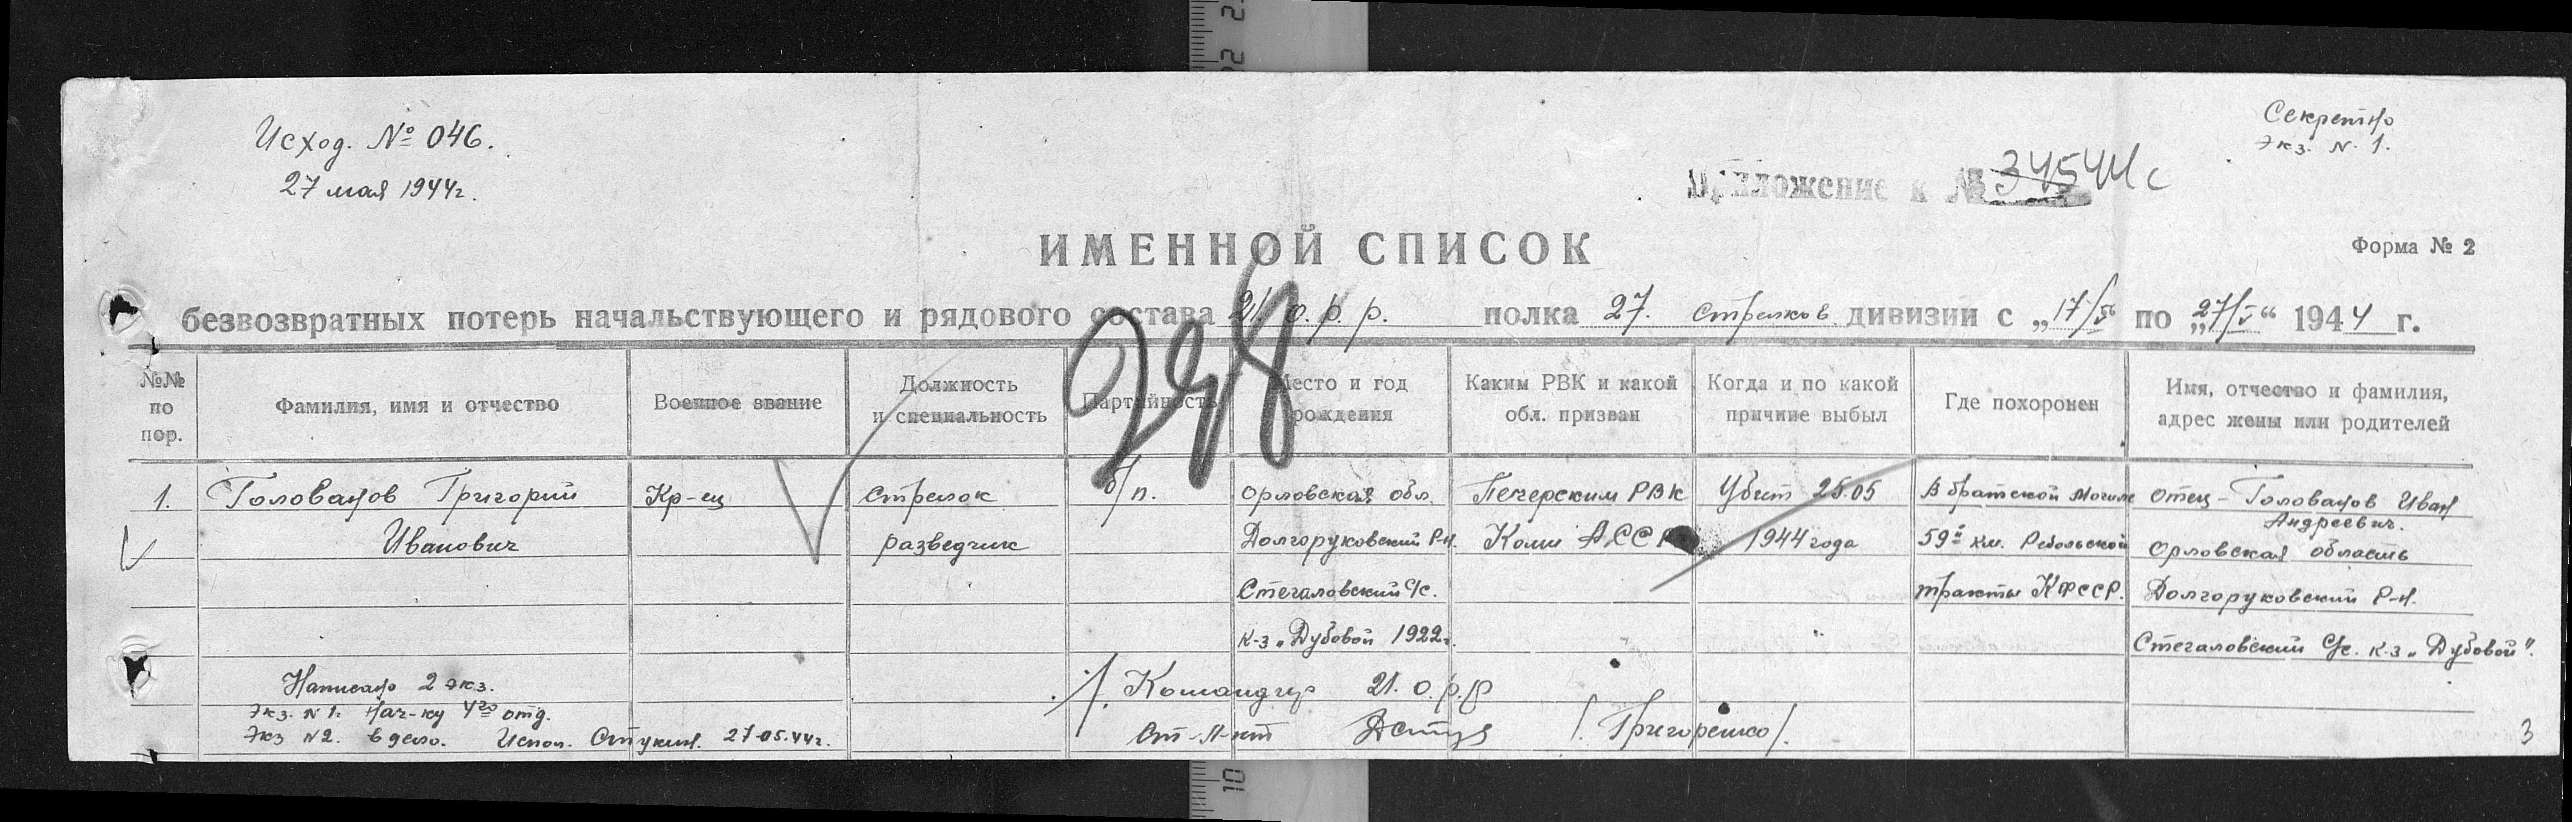 Секретно
Экз. N. 1.
Исход. № 046.
27 мая 1944г.
Приложение к № 34544с
ИМЕННОЙ СПИСОК
Форма № 2
безвозвратных потерь начальствующего и рядового состава 21 о.р.р. полка 27. стрелков дивизии с „17/5“ по „27/5“ 1944 г.
248
№№ по пор.
Фамилия, имя и отчество
Военное звание
Должность и специальность
Партийность
Место и год рождения
Каким РВК и какой обл. призван
Когда и по какой причине выбыл
Где похоронен
Имя, отчество и фамилия, адрес жены или родителей
1. Голованов Григорий Кр-ец стрелок б/п. Орловская обл. Печерским РВК Убит 25.05 В братской могиле отец - Голованов Иван
Андреевич.
Иванович разведчик Долгоруковский р-н. Коми АССР 1944 года 59й км. Ребольской Орловская область
Стегаловский с/с. тракты КФССР. Долгоруковский р-н.
к-з „Дубовой 1922г. Стегаловский с/с. к-з „Дубовой".
Написано 2 экз.
Экз. N 1. Нач-ку 4го отд.
Экз N 2. в дело. Испол. Стукин. 27.05.44г.
Командир 21. о.р.р
Ст. Л-нт /Григоренко/.
3
2
10